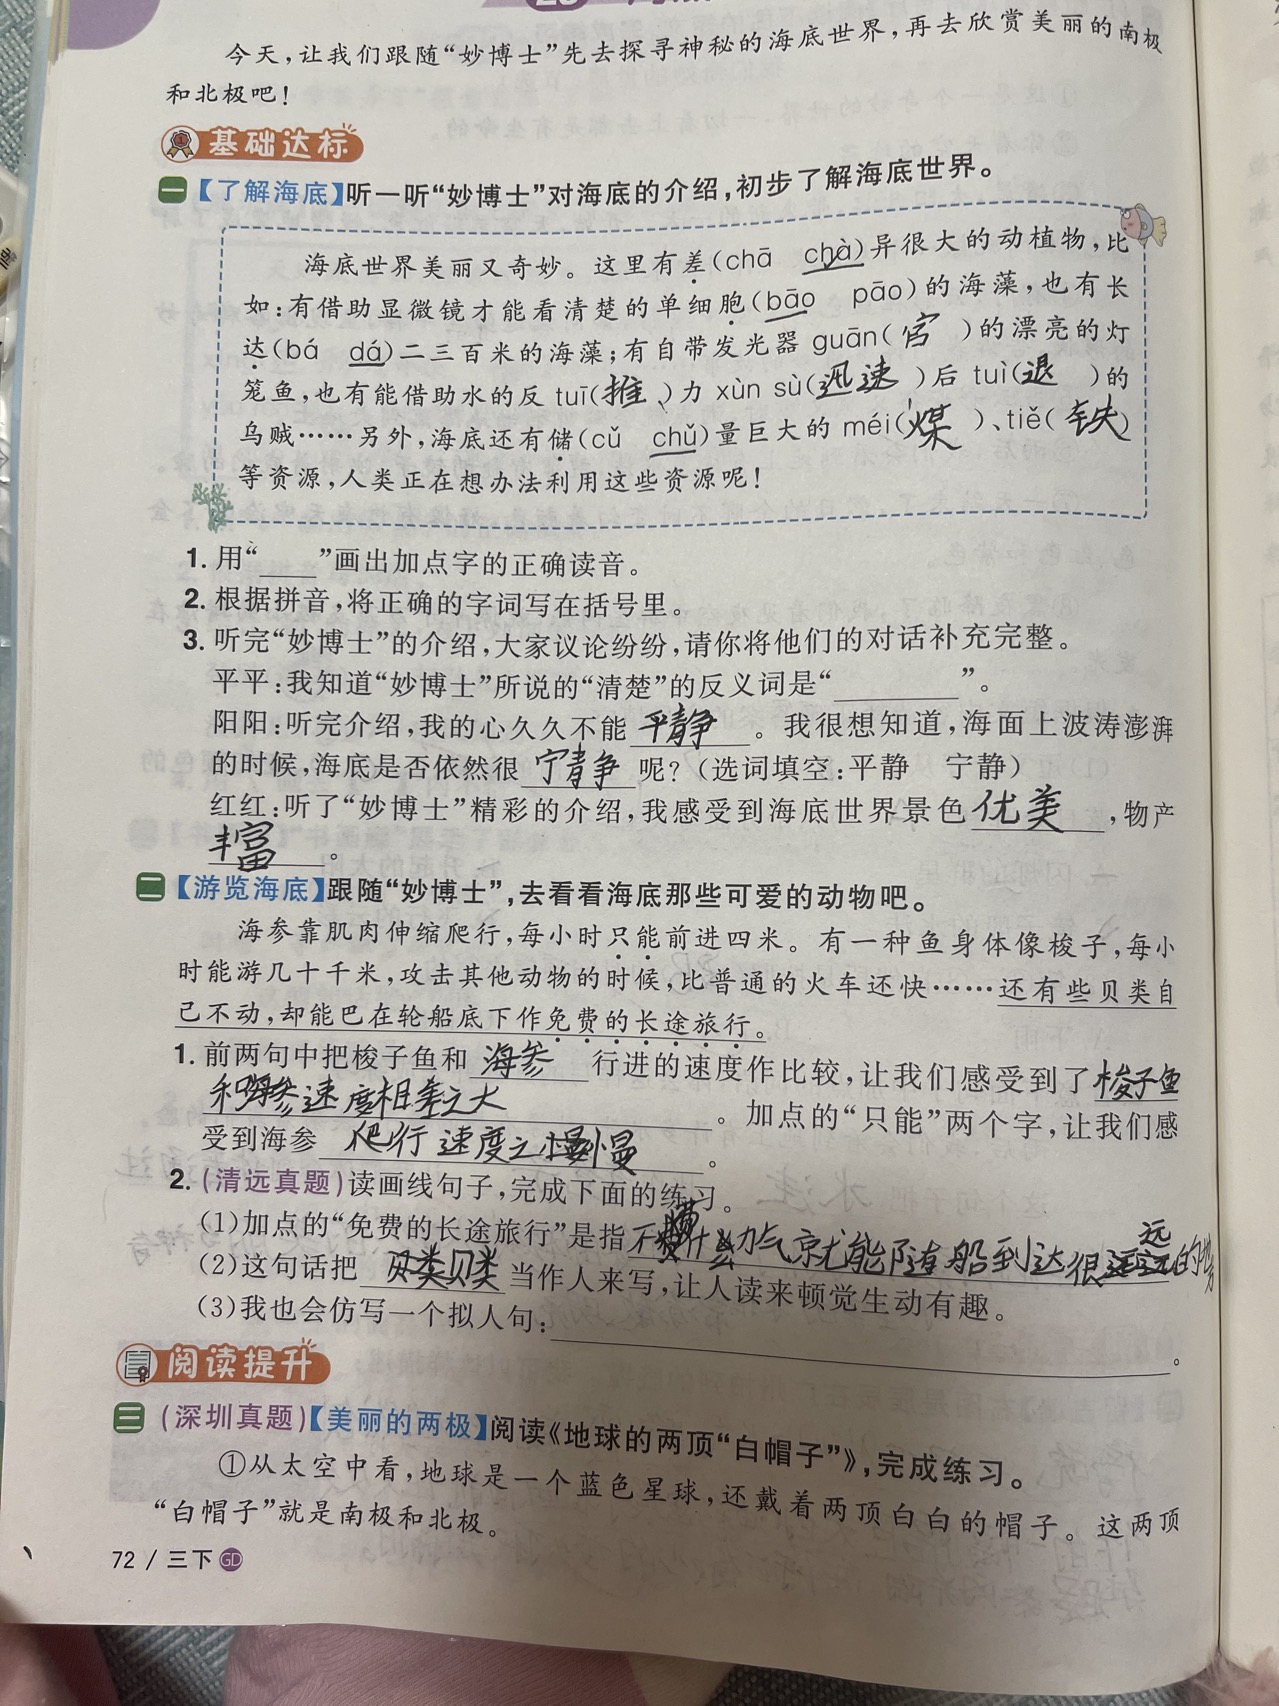 今天，让我们跟随“妙博士”先去探寻神秘的海底世界，再去欣赏美丽的南极
和北极吧！
基础达标
一【了解海底】听一听“妙博士”对海底的介绍，初步了解海底世界。
海底世界美丽又奇妙。这里有差(chā chà)异很大的动植物，比
如：有借助显微镜才能看清楚的单细胞(bāo pāo)的海藻，也有长
达(bá dá)二三百米的海藻；有自带发光器 guān(官)的漂亮的灯
笼鱼，也有能借助水的反 tuī(推)力 xùn sù(迅速)后 tuì(退)的
乌贼……另外，海底还有储(cǔ chǔ)量巨大的 méi(煤)、tiě(铁)
等资源，人类正在想办法利用这些资源呢！
1. 用“____”画出加点字的正确读音。
2. 根据拼音，将正确的字词写在括号里。
3. 听完“妙博士”的介绍，大家议论纷纷，请你将他们的对话补充完整。
平平：我知道“妙博士”所说的“清楚”的反义词是“________”。
阳阳：听完介绍，我的心久久不能 平静 。我很想知道，海面上波涛澎湃
的时候，海底是否依然很 宁静 呢？(选词填空：平静 宁静)
红红：听了“妙博士”精彩的介绍，我感受到海底世界景色 优美 ，物产
丰富 。
二【游览海底】跟随“妙博士”，去看看海底那些可爱的动物吧。
海参靠肌肉伸缩爬行，每小时只能前进四米。有一种鱼身体像梭子，每小
时能游几十千米，攻击其他动物的时候，比普通的火车还快……还有些贝类自
己不动，却能巴在轮船底下作免费的长途旅行。
1. 前两句中把梭子鱼和 海参 行进的速度作比较，让我们感受到了 梭子鱼
和海参速度相差之大 。加点的“只能”两个字，让我们感
受到海参 爬行速度之慢 。
2. (清远真题)读画线句子，完成下面的练习。
(1)加点的“免费的长途旅行”是指 不费什么力气就能随船到达很远的地方
(2)这句话把 贝类 当作人来写，让人读来顿觉生动有趣。
(3)我也会仿写一个拟人句：________。
阅读提升
三(深圳真题)【美丽的两极】阅读《地球的两顶“白帽子”》，完成练习。
①从太空中看，地球是一个蓝色星球，还戴着两顶白白的帽子。这两顶
“白帽子”就是南极和北极。
72 / 三下 GD